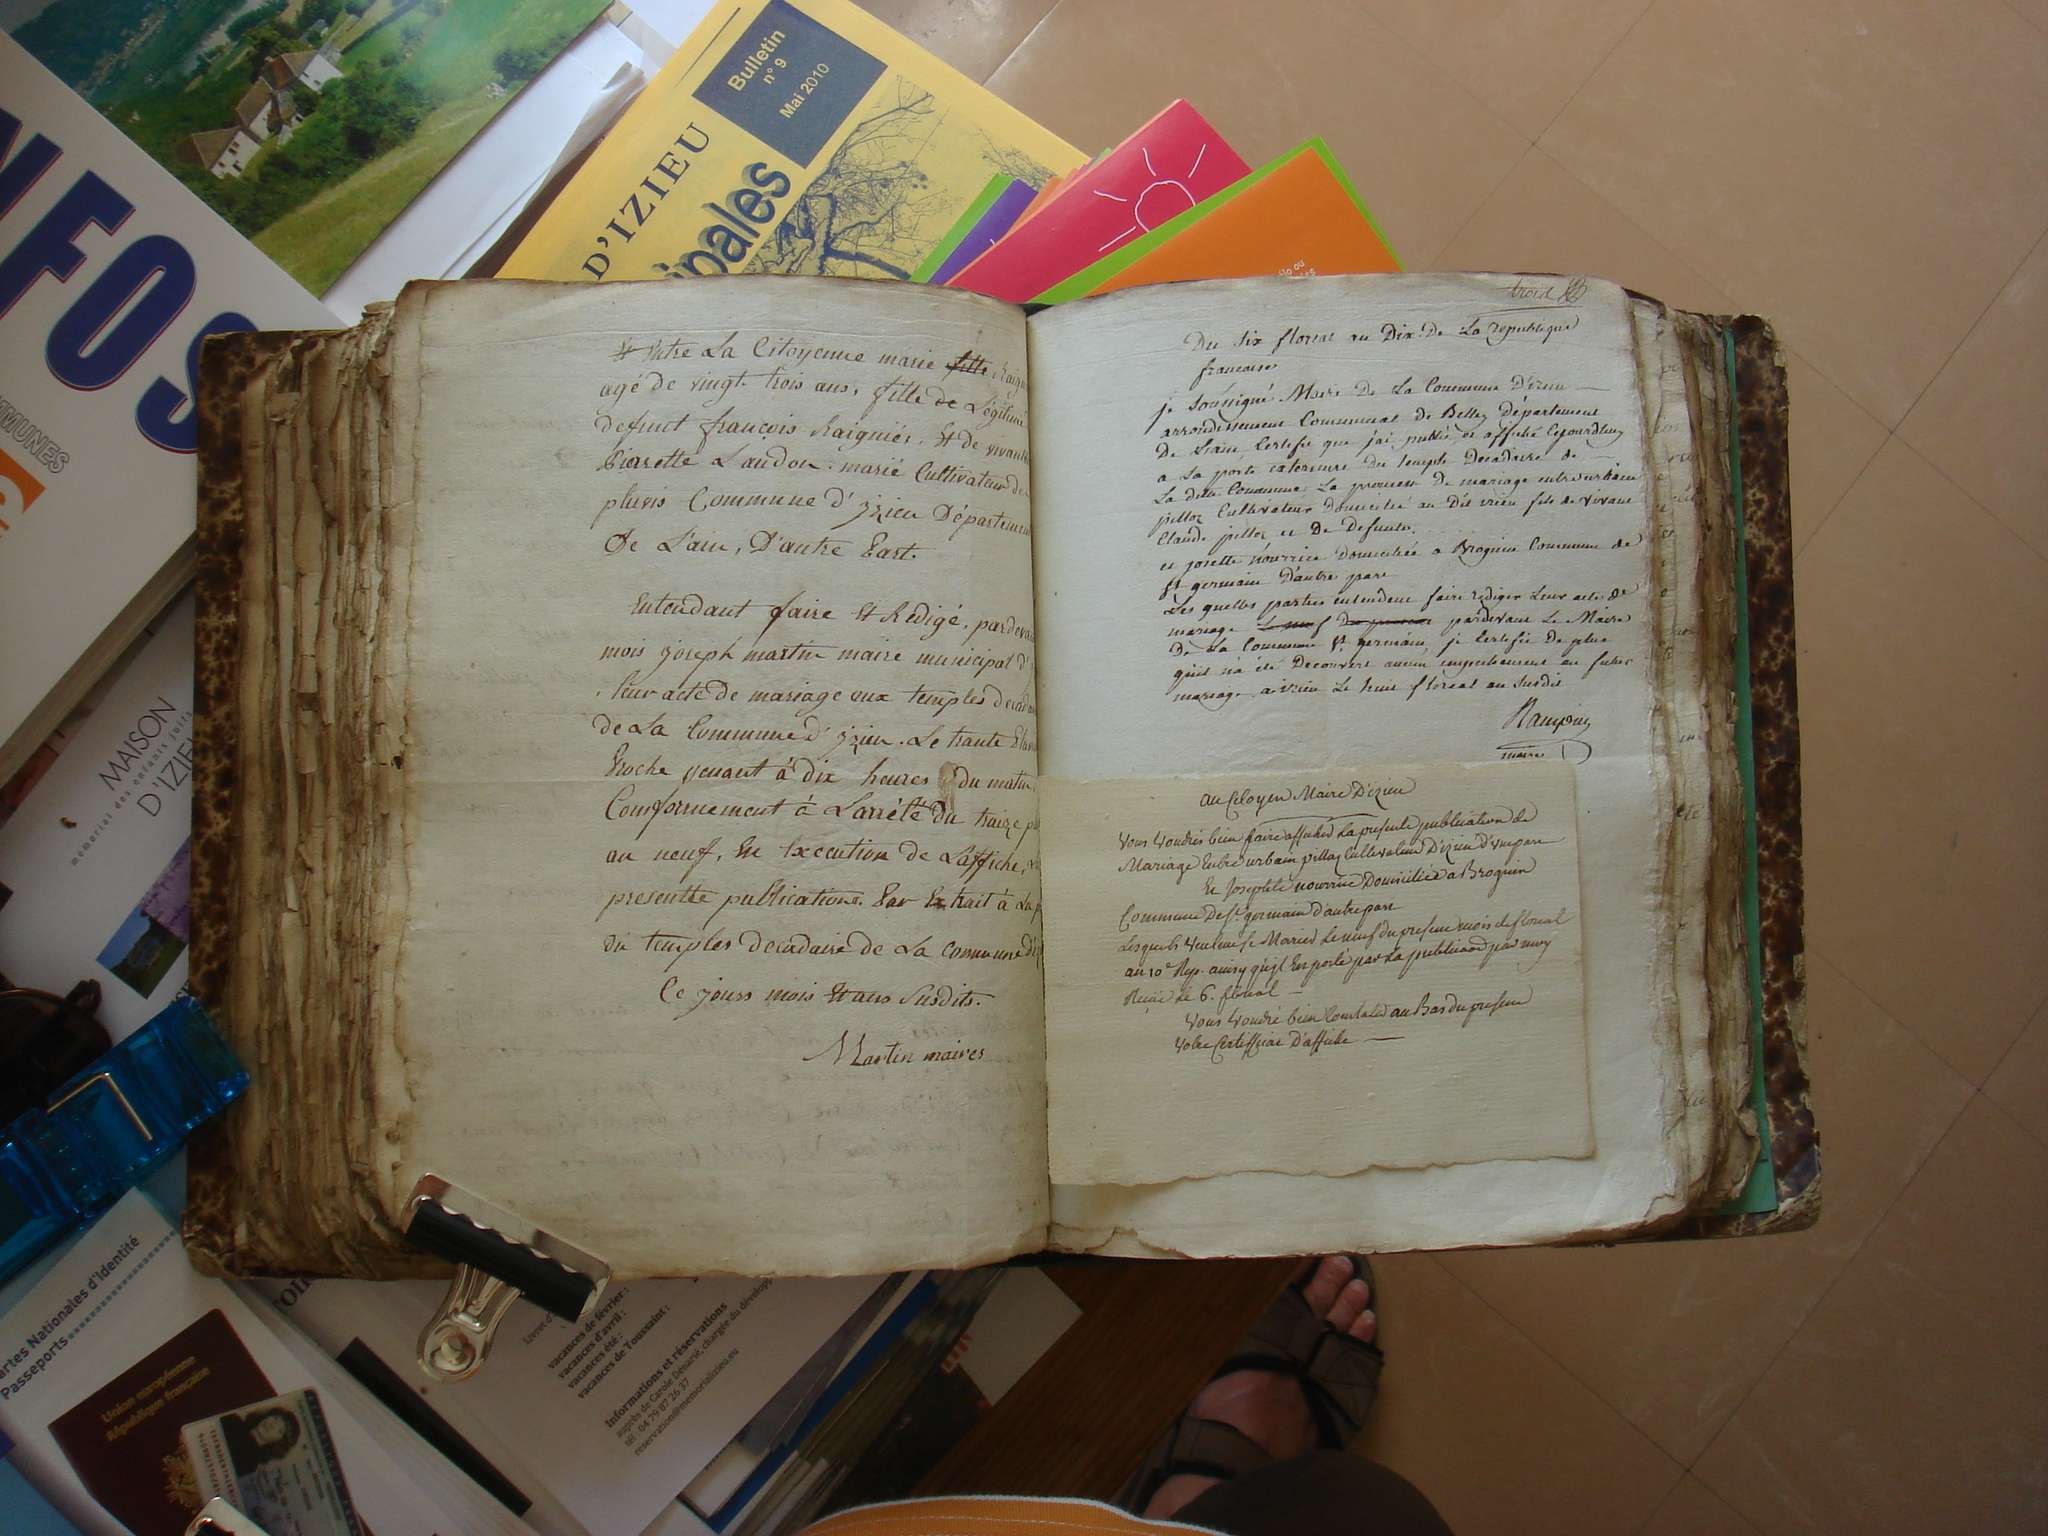 NFOS
MMUNES
Bulletin
n° 9
Mai 2010
D'IZIEU
ipales
MAISON
D'IZIEU
memorial des enfants juifs
Et Entre La Citoyenne marie fille Raign
agé de vingt trois ans, fille de Légitime
defunt françois Raigniér, Et de vivante
Pierrette Laudon. marié Cultivateur de
plusis Commune d'jzieu Département
De L'ain, D'autre Part.
Entendant faire Et Redigé, pardeva
mois joseph martin maire municipal d'
leur acte de mariage aux temples decada
de La Commune d'jzieu. Le trante
Proche venant à dix heures du matin
Comformement à L'arrêté du traize
au neuf, En Execution de L'affiche,
presentte publication. Par Extrait à La p
du temples decadaire de La commune d'j
Ce jours mois Et ans Susdits.
Martin maires
trois
Du six floreal an Dix De La republique
francaise
je soussigné Maire De La Commune D'izieu
arrondissement Communal de Belley Département
De L'ain, Certifie que j'ai publié et affiché cejourdhuy
a La porte exterieure Du temple Decadaire de
La dite Commune La promesse De mariage entre urbain
pilloz Cultivateur Domicilié au Dit izieu fils de vivant
Claude pilloz et De Defunte
et josette Nourrice Domiciliée a Brognin Commune de
st germain D'autre part
Les quelles parties entendent faire rediger Leur acte de
mariage Le neuf Du present pardevant Le Maire
De La Commune st germain, je Certifie De plus
qu'il n'a été Decouvert aucun empechement au futur
mariage a izieu Le huit floreal an susdit
maire
au Citoyen Maire D'izieu
Vous Voudrés bien faire afficher La presente publication de
Mariage Entre urbain pilloz Cultivateur D'izieu D'une part
Et Josephte nourrice Domiciliée a Brognin
Commune De St germain d'autre part
Lesquels Veulent se Marier Le neuf du present mois de floreal
an 10e Rep. ainsy qu'il Est porté par La publication par moy
Reçue Le 6. floreal
Vous Voudré bien Constater au Bas du present
Votre Certifficat D'affiche
artes Nationales d'Identité
Passeports
Union européenne
République française
Livret d'
vacances de février :
vacances d'avril :
vacances été :
vacances de Toussaint :
Informations et réservations
auprès de Carole Dénarié, chargée du dévelop
tél : 04 79 87 26 37
reservation@memorializieu.eu